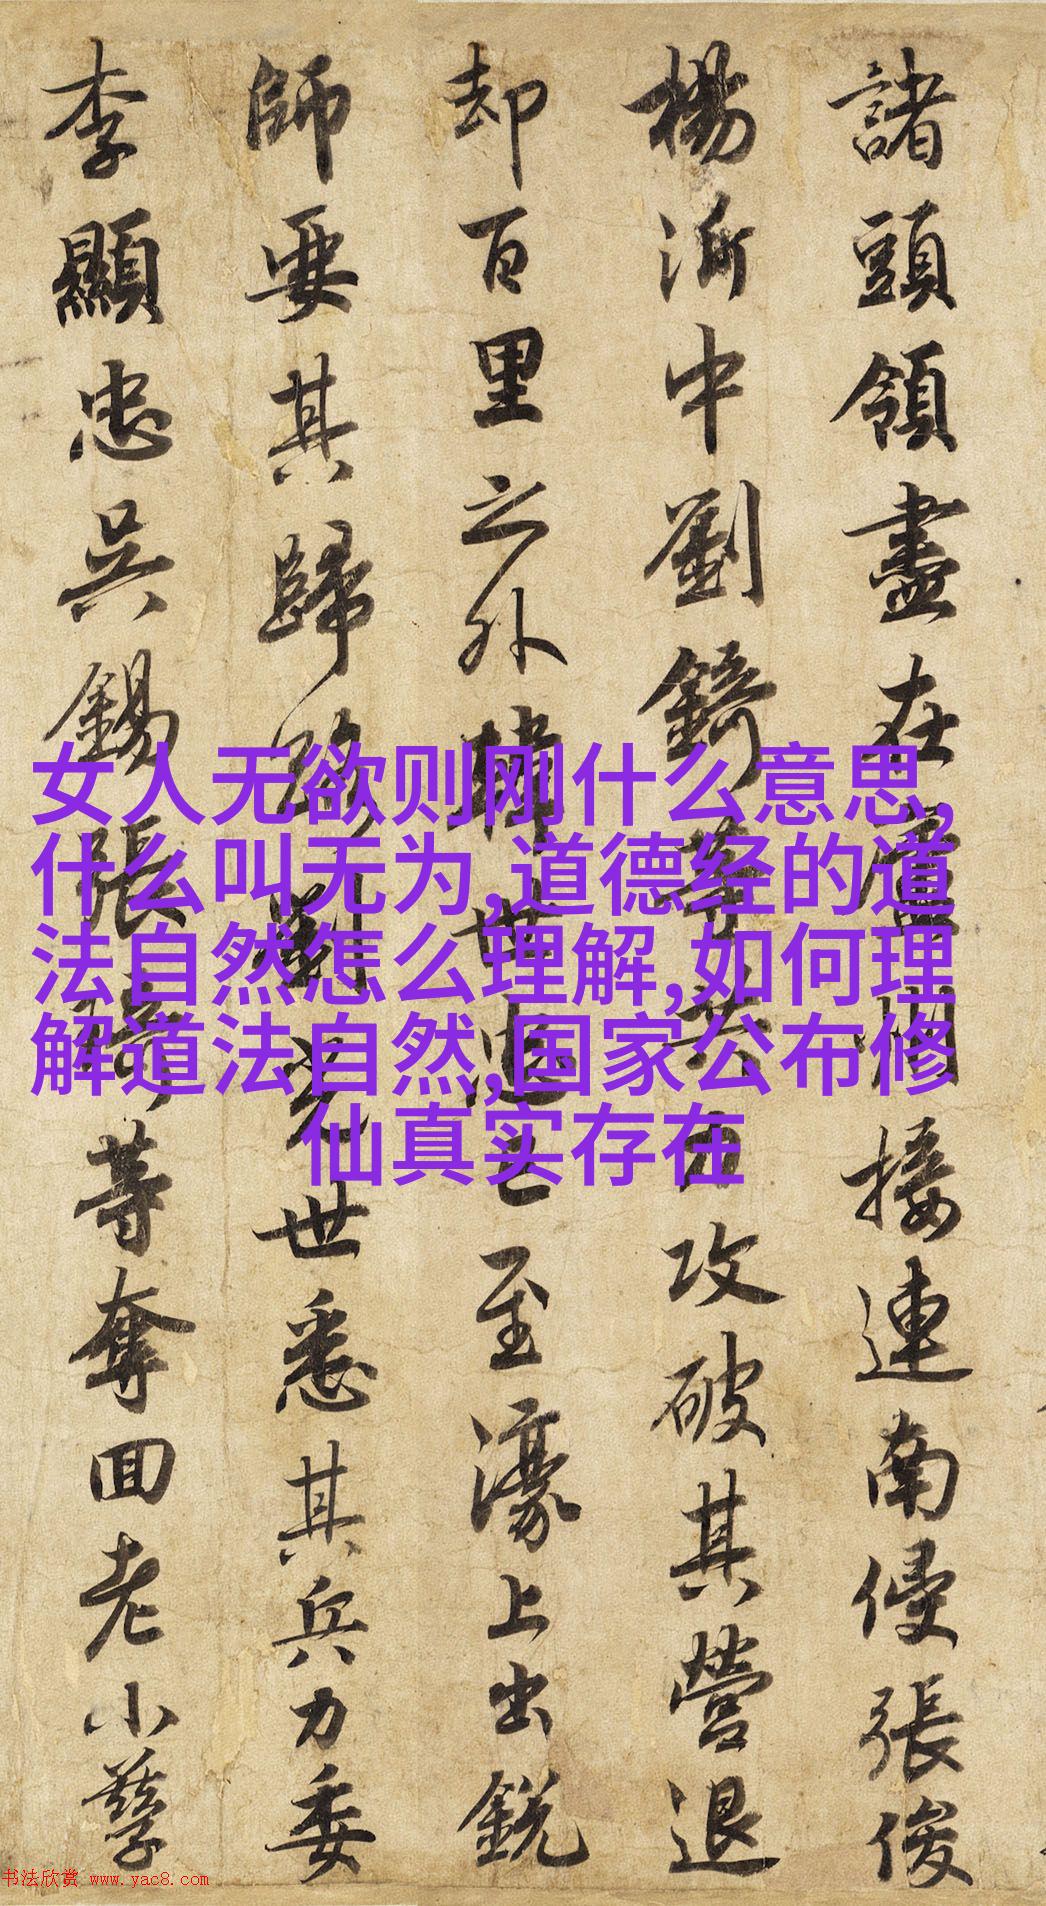 諸頭領盡在廬州接連南侵張俊
楊沂中劉錡等共力攻破其營退
却百里之外韓世忠已至濠上出銳
師要其歸路劉光世悉其兵力委
李顯忠吳錫張琦等奪回老小孳
女人无欲则刚什么意思,
什么叫无为,道德经的道
法自然怎么理解,如何理
解道法自然,国家公布修
仙真实存在
书法欣赏 www.yac8.com